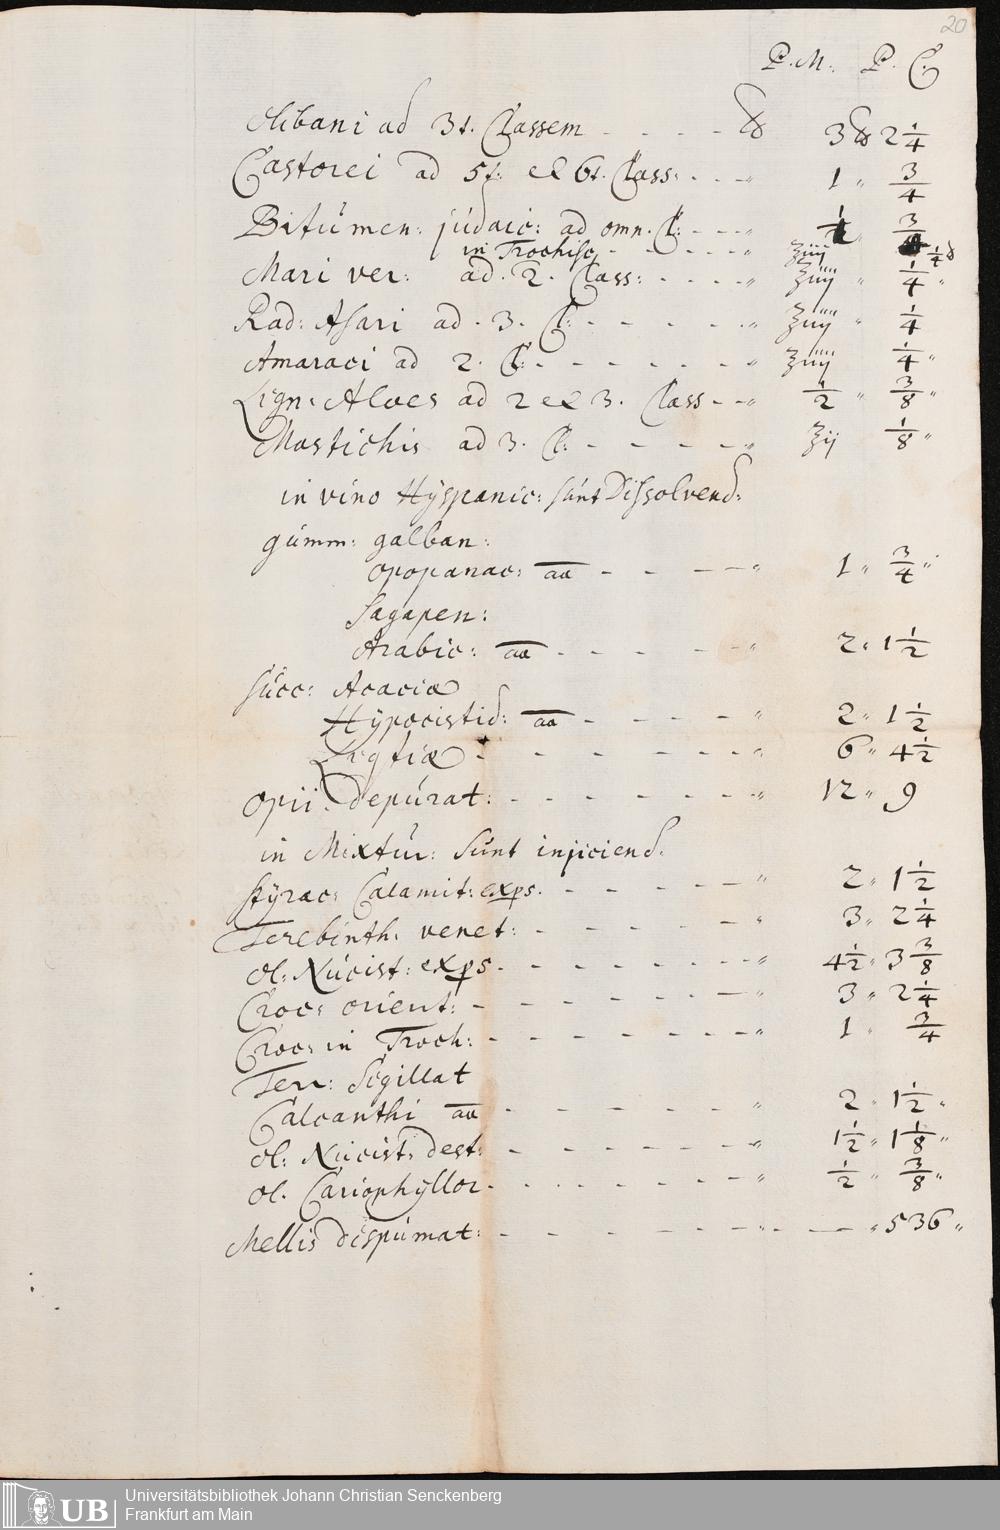 20
P. M: P. C:
Olibani ad 3t. Classem - - - - ℔ 3 ℔ 2 1/4
Castorei ad 5t: et 6t. Class: - - - " 1 " 3/4
Bitúmen: júdaic: ad omn. Cl: - - - " 1/2 " 3/4
in Trochisc - - - - - - " ʒiij 1/4 ℔
Mari ver: ad. 2. Class: - - - - " ʒiiij " 1/4 "
Rad: Asari ad. 3. Cl: - - - - - " ʒiiij " 1/4
Amaraci ad 2. Cl: - - - - - - " ʒiiij 1/4 "
Lign: Aloes ad 2 et 3. Class - - " 1/2 " 3/8 "
Mastichis ad 3. Cl: - - - - - " ʒij 1/8 "
in vino Hÿspanic: súnt Dissolvend:
gúmm: galban:
opopanac: aa - - - - " 1 " 3/4 "
Sagapen:
Arabic: aa - - - - - " 2 " 1 1/2
Súcc: Acaciæ
Hÿpocistid: aa - - - - - " 2 " 1 1/2
- - - - - - " 6 " 4 1/2
Opii depúrat: - - - - - - - " 12 " 9
in Mixtúr: súnt injiciend.
Stÿrac: Calamit: exps. - - - - - " 2 " 1 1/2
Terebinth: venet: - - - - - - " 3 " 2 1/4
ol: Núcist: exps. - - - - - - - " 4 1/2 " 3 3/8
Croc: orient: - - - - - - - " 3 " 2 1/4
Croc: in Troch: - - - - - - - " 1 " 3/4
Terr: Sigillat
Calcanthi aa - - - - - - " 2 " 1 1/2 "
ol: Núcist: dest: - - - - - - - " 1 1/2 " 1 1/8 "
ol. Cariophÿllor - - - - - - - " 1/2 " 3/8 "
Mellis dispúmat: - - - - - - - " - - - " 536 "
UB Universitätsbibliothek Johann Christian Senckenberg
Frankfurt am Main